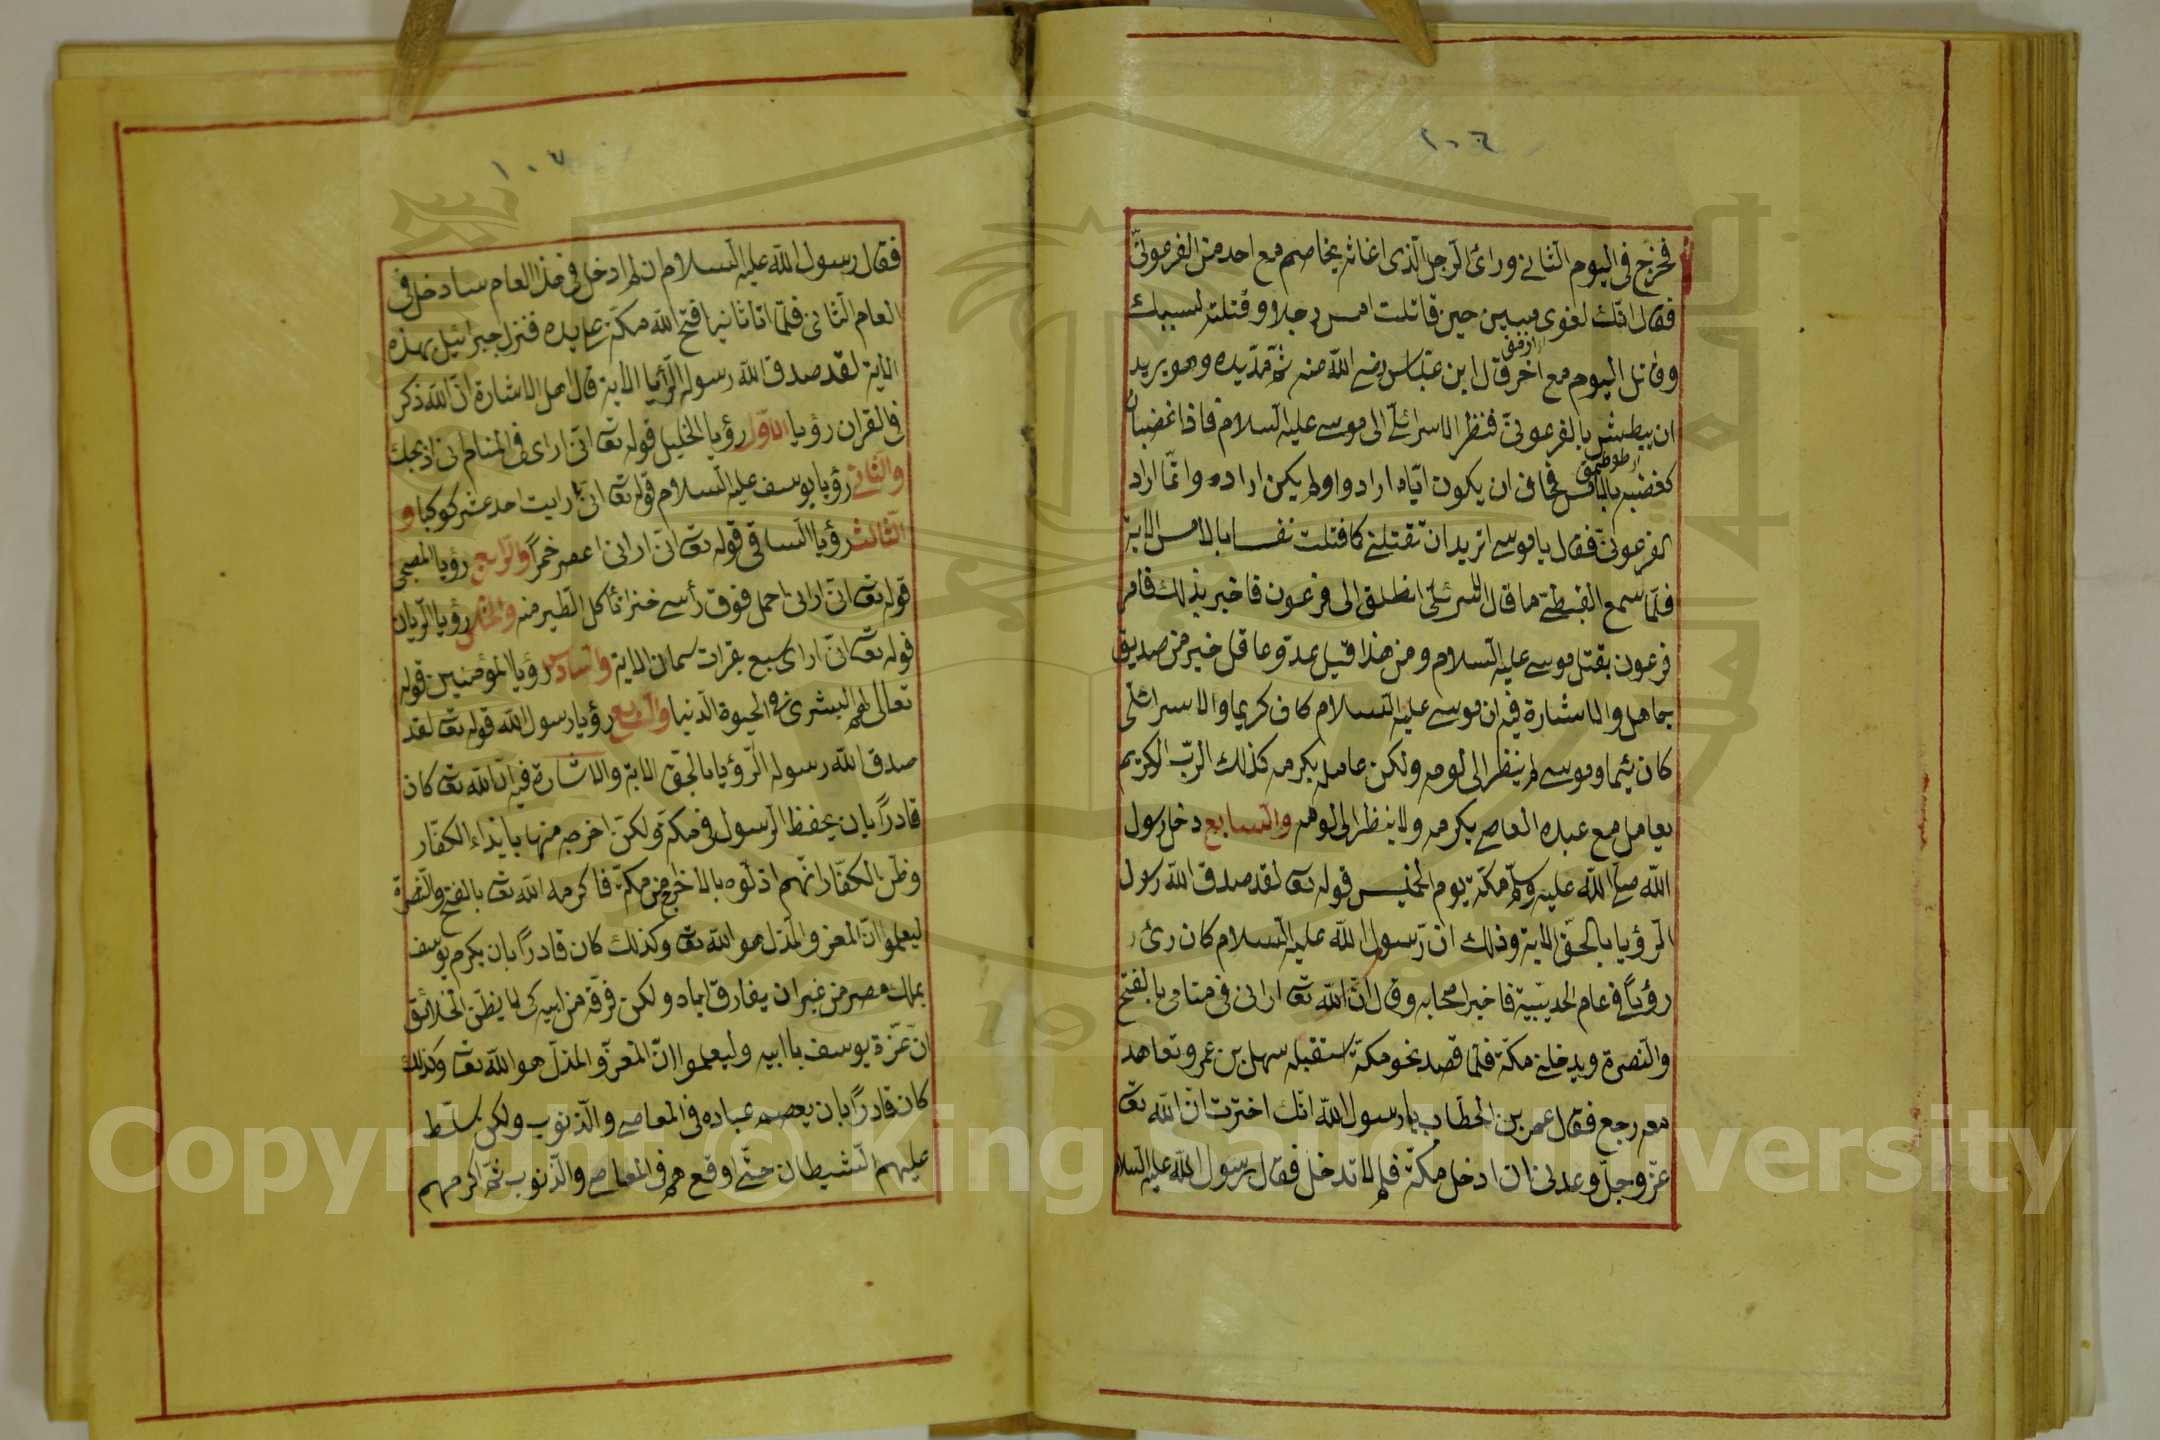 ١٠٦
فخرج فى اليوم الثانى ورائ الرجل الذى اغاثه يخاصم مع احد من الفرعونىّ
فقال انّك لغوى مبين حين قاتلت امس رجلا وقتلته لسببك
وقاتل اليوم مع اخر قال ابن عبّاس رضى اللّه عنه ثمّ مدّ يده وهو يريد
ان يبطش بالفرعونىّ فنظر الاسرائلىّ الى موسى عليه السلام فاذا غضبان
كغضبه بالامس فخاف ان يكون ايّاه اراد ولم يكن اراده وانّما اراد
الفرعونىّ فقال يا موسى اتريد ان تقتلنى كما قتلت نفسا بالامس الاية
فلمّا سمع القبطىّ ما قال الاسرئلىّ انطلق الى فرعون فاخبر بذلك فامر
فرعون بقتل موسى عليه السلام ومن هذا قيل عدو عاقل خير من صديق
جاهل والاشارة فيه ان موسى عليه السلام كان كريما والاسرائلىّ
كان لئيما وموسى لم ينظر الى لومه ولكن عامله بكرمه كذلك الربّ الكريم
يعامل مع عبده العاصى بكرمه ولا ينظر الى لومه والسابع دخل رسول
اللّه صلّى اللّه عليه وسلّم مكّة يوم الخميس قوله تعا لقد صدق اللّه رسوله
الرؤيا بالحقّ الاية وذلك ان رسول اللّه عليه السلام كان رئ
رؤيا فى عام الحديبية فاخبر اصحابه وقال انّ اللّه تعا ارانى فى منامى بالفتح
والنصرة ويدخلنى مكّة فلمّا قصد نحو مكّة استقبله سهل بن عمرو تعاهد
معه رجع فقال عمر بن الخطاب يا رسول اللّه انّك اخترت ان اللّه تعا
عزّ وجلّ وعدنى ان ادخل مكّة فلم لا تدخل فقال رسول اللّه عليه السلام
١٠٧
فقال رسول اللّه عليه السلام ان لم ادخل فى هذا العام سادخل فى
العام الثانى فلمّا اتا ثانيا فتح اللّه مكّة على يده فنزل جبرائيل بهذه
الاية لقد صدق اللّه رسوله الرؤيا الاية قال اهل الاشارة انّ اللّه ذكر
فى القران رؤيا الاوّل رؤيا الخليل قوله تعا انّى ارى فى المنام انى اذبحك
والثانى رؤيا يوسف عليه السلام قوله تعا انى رايت احد عشر كوكبا و
الثالث رؤيا الساقى قوله تعا انّى ارانى اعصر خمراً والرابع رؤيا
قوله تعا انّى ارانى احمل فوق رأسى خبزا تأكل الطير منه والخامس رؤيا الريان
قوله تعا انّى ارى سبع بقرات سمان الاية والسادس رؤيا المؤمنين قوله
تعالى لهم البشرى فى الحيوة الدنيا والسابع رؤيا رسول اللّه قوله تعا لقد
صدق اللّه رسوله الرؤيا بالحق الاية والاشارة فيه انّ اللّه تعا كان
قادراً بان يحفظ الرسول فى مكة ولكن اخرجه منها بايذاء الكفّار
وظنّ الكفّار انّهم اذلّوه بالاخراج من مكّة فاكرمه اللّه تعا بالفتح والنصرة
ليعلموا انّ المعزّ والمذلّ هو اللّه تعا وكذلك كان قادراً بان يكرم يوسف
بملك مصر من غير ان يفارق اباه ولكن فرقه من ابيه كى لا يظنّ الخلائق
انّ عزّة يوسف باابيه وليعلموا انّ المعزّ والمذلّ هو اللّه تعا وكذلك
كان قادراً بان يعصم عباده فى المعاصى والذنوب ولكن سلّط
عليهم الشيطان حتّى اوقعهم فى المعاصى والذنوب ثمّ اكرمهم
Copyright © King Saud University